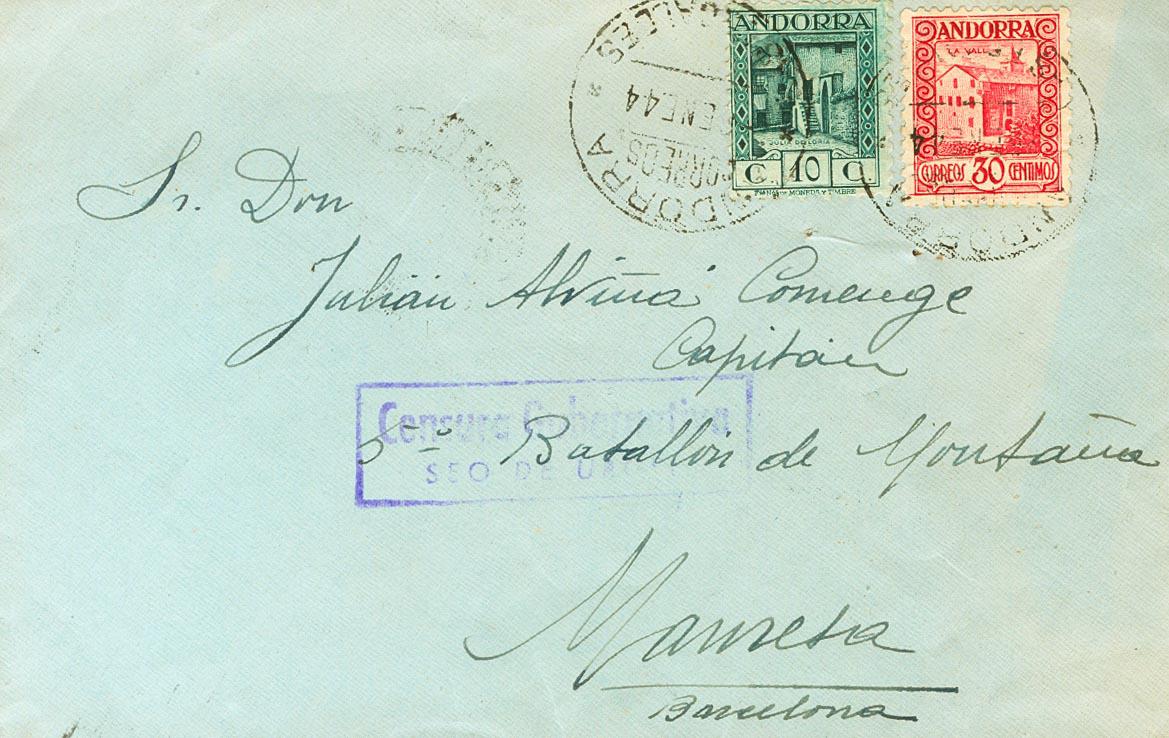 ANDORRA
JULIA DE LORIA
C. 10 C.
FCA NAL DE MONEDA Y TIMBRE
ANDORRA
LA VALL
CORREOS 30 CENTIMOS
ANDORRA *
CORREOS
ENE 44
Sr. Don
Julián Alviñá Comenge
Capitán
Censura Gubernativa
SEO DE
5º Batallón de Montaña
Manresa
Barcelona